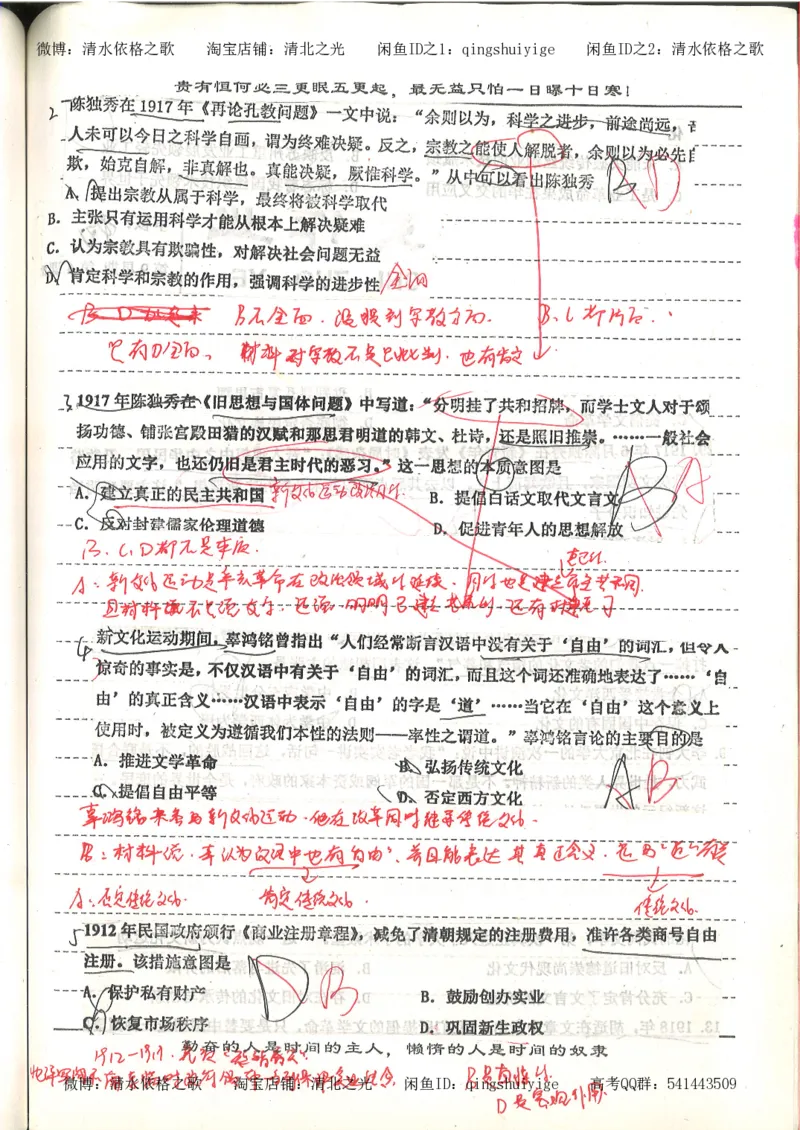 微博：清水依格之歌 淘宝店铺：清北之光 闲鱼ID之1：qingshuiyige 闲鱼ID之2：清水依格之歌
贵有恒何必三更眠五更起，最无益只怕一日曝十日寒！
2 陈独秀在1917年《再论孔教问题》一文中说：“余则以为，科学之进步，前途尚远，吾
人未可以今日之科学自画，谓为终难决疑。反之，宗教之能使人解脱者，余则以为必先自
欺，始克自解，非真解也。真能决疑，厥惟科学。”从中可以看出陈独秀 B D
A. 提出宗教从属于科学，最终将被科学取代
B. 主张只有运用科学才能从根本上解决疑难
C. 认为宗教具有欺骗性，对解决社会问题无益
D. 肯定科学和宗教的作用，强调科学的进步性 全面
B不全面．没提到宗教方面． B、C片面．
只有D全面、材料对宗教不是只批判．也有肯定
3 1917年陈独秀在《旧思想与国体问题》中写道：“分明挂了共和招牌，而学士文人对于颂
扬功德、铺张宫殿田猎的汉赋和那思君明道的韩文、杜诗，还是照旧推崇。……一般社会
应用的文字，也还仍旧是君主时代的恶习。”这一思想的本质意图是 B A
A. 建立真正的民主共和国
B. 提倡白话文取代文言文
C. 反对封建儒家伦理道德
D. 促进青年人的思想解放
B、C、D都不是本质．
A：新文化运动是辛亥革命在政治领域的继续．
4 新文化运动期间，辜鸿铭曾指出“人们经常断言汉语中没有关于‘自由’的词汇，但令人
惊奇的事实是，不仅汉语中有关于‘自由’的词汇，而且这个词还准确地表达了……‘自
由’的真正含义……汉语中表示‘自由’的字是‘道’……当它在‘自由’这个意义上
使用时，被定义为遵循我们本性的法则——率性之谓道。”辜鸿铭言论的主要目的是
A. 推进文学革命
B. 弘扬传统文化
C. 提倡自由平等
D. 否定西方文化 A B
B：材料说．其认为汉语中也有“自由”、并且能表达其真正含义．
A：否定传统文化． 肯定传统文化． 传统文化．
5 1912年民国政府颁行《商业注册章程》，减免了清朝规定的注册费用，准许各类商号自由
注册。该措施意图是 D B
A. 保护私有财产
B. 鼓励创办实业
C. 恢复市场秩序
D. 巩固新生政权
勤奋的人是时间的主人，懒惰的人是时间的奴隶
D是客观作用
微博：清水依格之歌 淘宝店铺：清北之光 闲鱼ID：qingshuiyige 高考QQ群：541443509